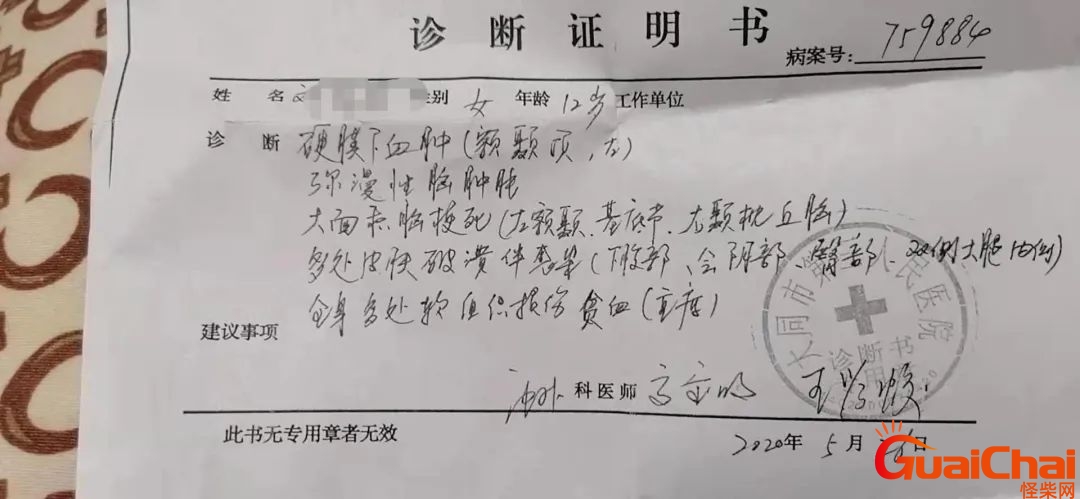 诊断证明书
病案号: 759884
姓 名 性别 女 年龄 12岁 工作单位
诊 断 硬膜下血肿(额颞顶、左)
弥漫性脑肿胀
大面积脑梗死(左额颞、基底节、右颞枕丘脑)
多处皮肤破溃伴感染(下腹部、会阴部、臀部、双侧大腿内侧)
全身多处软组织损伤 贫血(重度)
建议事项
科医师
大同市第 人民医院
诊断书
专用章
此书无专用章者无效
2020年 5月 日
GuaiChai
怪柴网